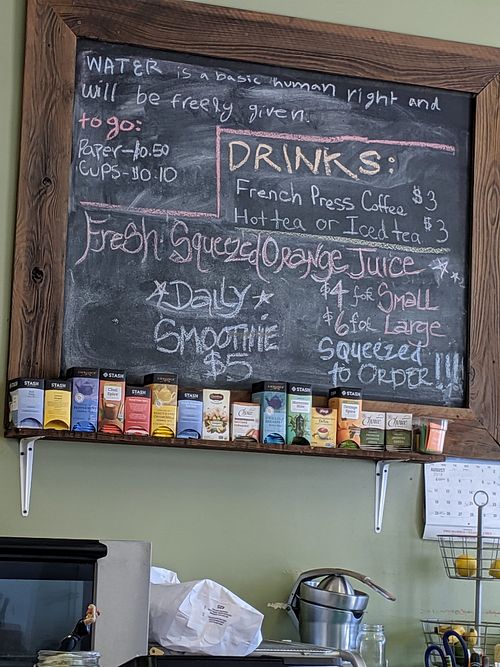 WATER is a basic human right and
will be freely given.
to go:
Paper-$0.50
Cups-$0.10
DRINKS:
French Press Coffee $3
Hot tea or Iced tea $3
Fresh Squeezed Orange Juice
Daily
Smoothie
$5
$4 for Small
$6 for Large
Squeezed
to ORDER!!!
STASH
STASH
STASH
STASH
STASH
STASH
Chai
Spice
Choice
Choice
Choice
AUGUST